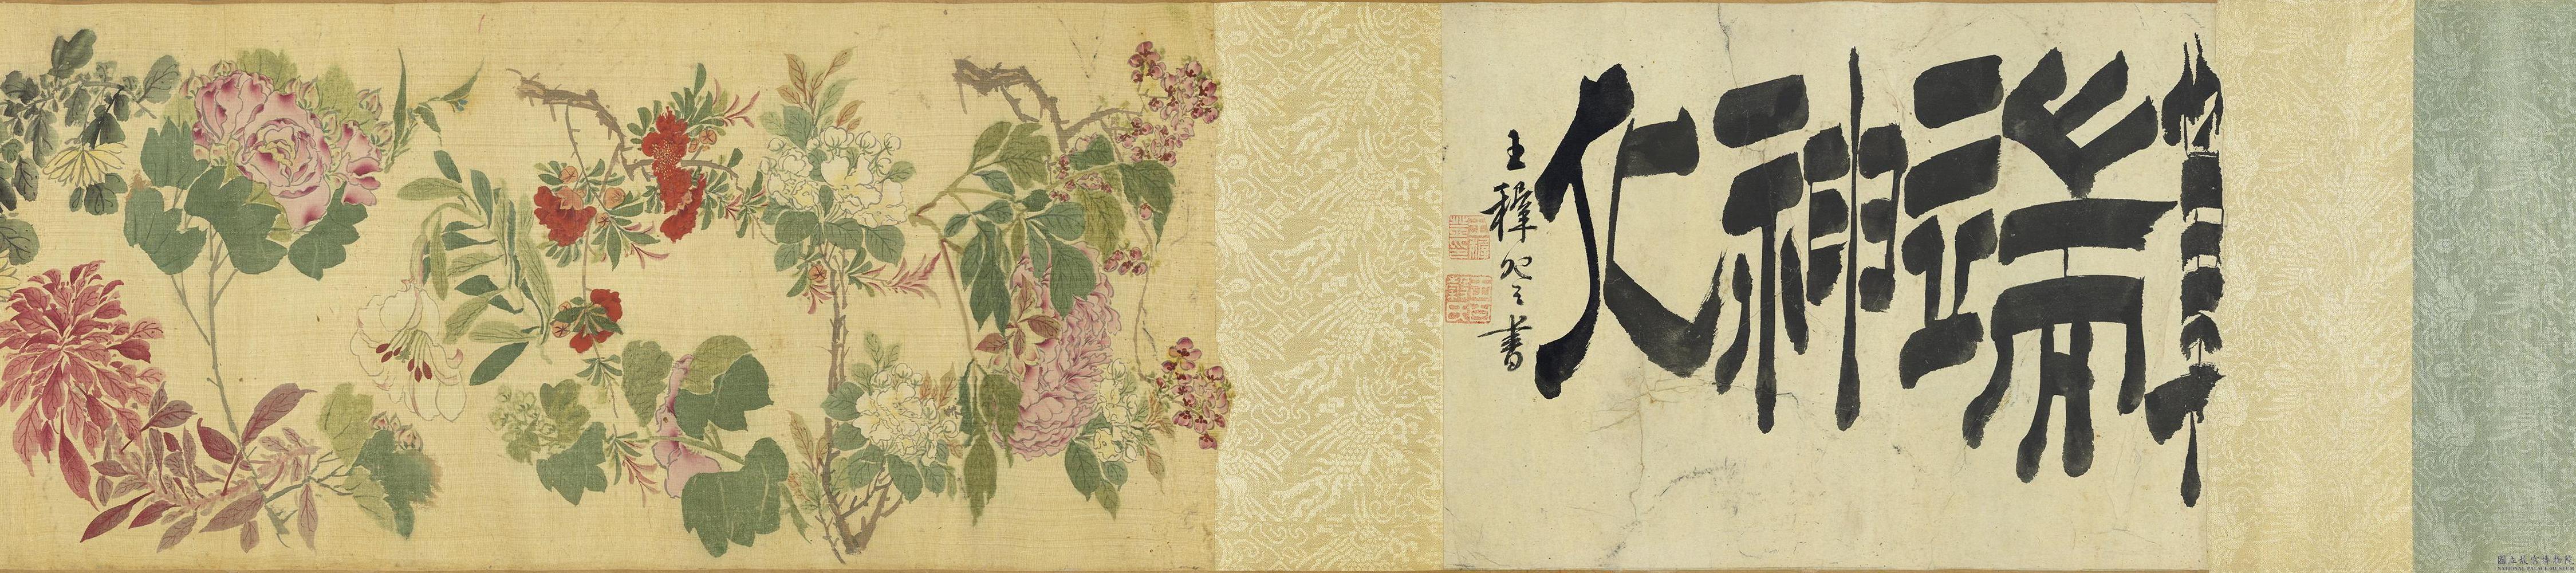 端神化
王穉登書
國立故宮博物院
NATIONAL PALACE MUSEUM